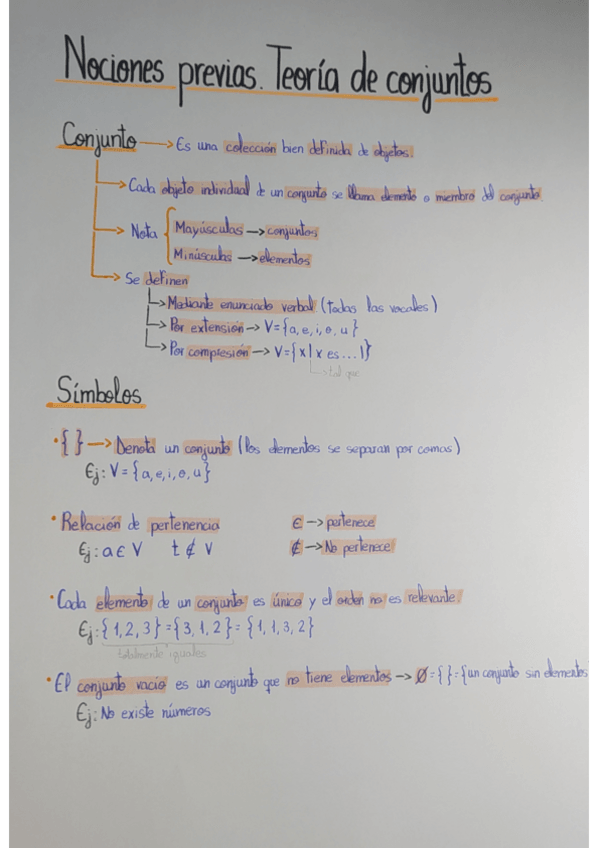 Nociones previas. Teoría de conjuntos
Conjunto → Es una colección bien definida de objetos.
→ Cada objeto individual de un conjunto se llama elemento o miembro del conjunto.
→ Nota { Mayúsculas → conjuntos
Minúsculas → elementos
→ Se definen
→ Mediante enunciado verbal (todas las vocales)
→ Por extensión → V={a, e, i, o, u}
→ Por compresión → V={x | x es...|}
→ tal que
Símbolos
• { } → Denota un conjunto (los elementos se separan por comas)
Ej: V = {a, e, i, o, u}
• Relación de pertenencia ∈ → pertenece
Ej: a ∈ V t ∉ V ∉ → No pertenece
• Cada elemento de un conjunto es único y el orden no es relevante.
Ej: {1, 2, 3} = {3, 1, 2} = {1, 1, 3, 2}
totalmente iguales
• El conjunto vacío es un conjunto que no tiene elementos → Ø = { } = {un conjunto sin elementos
Ej: No existe números